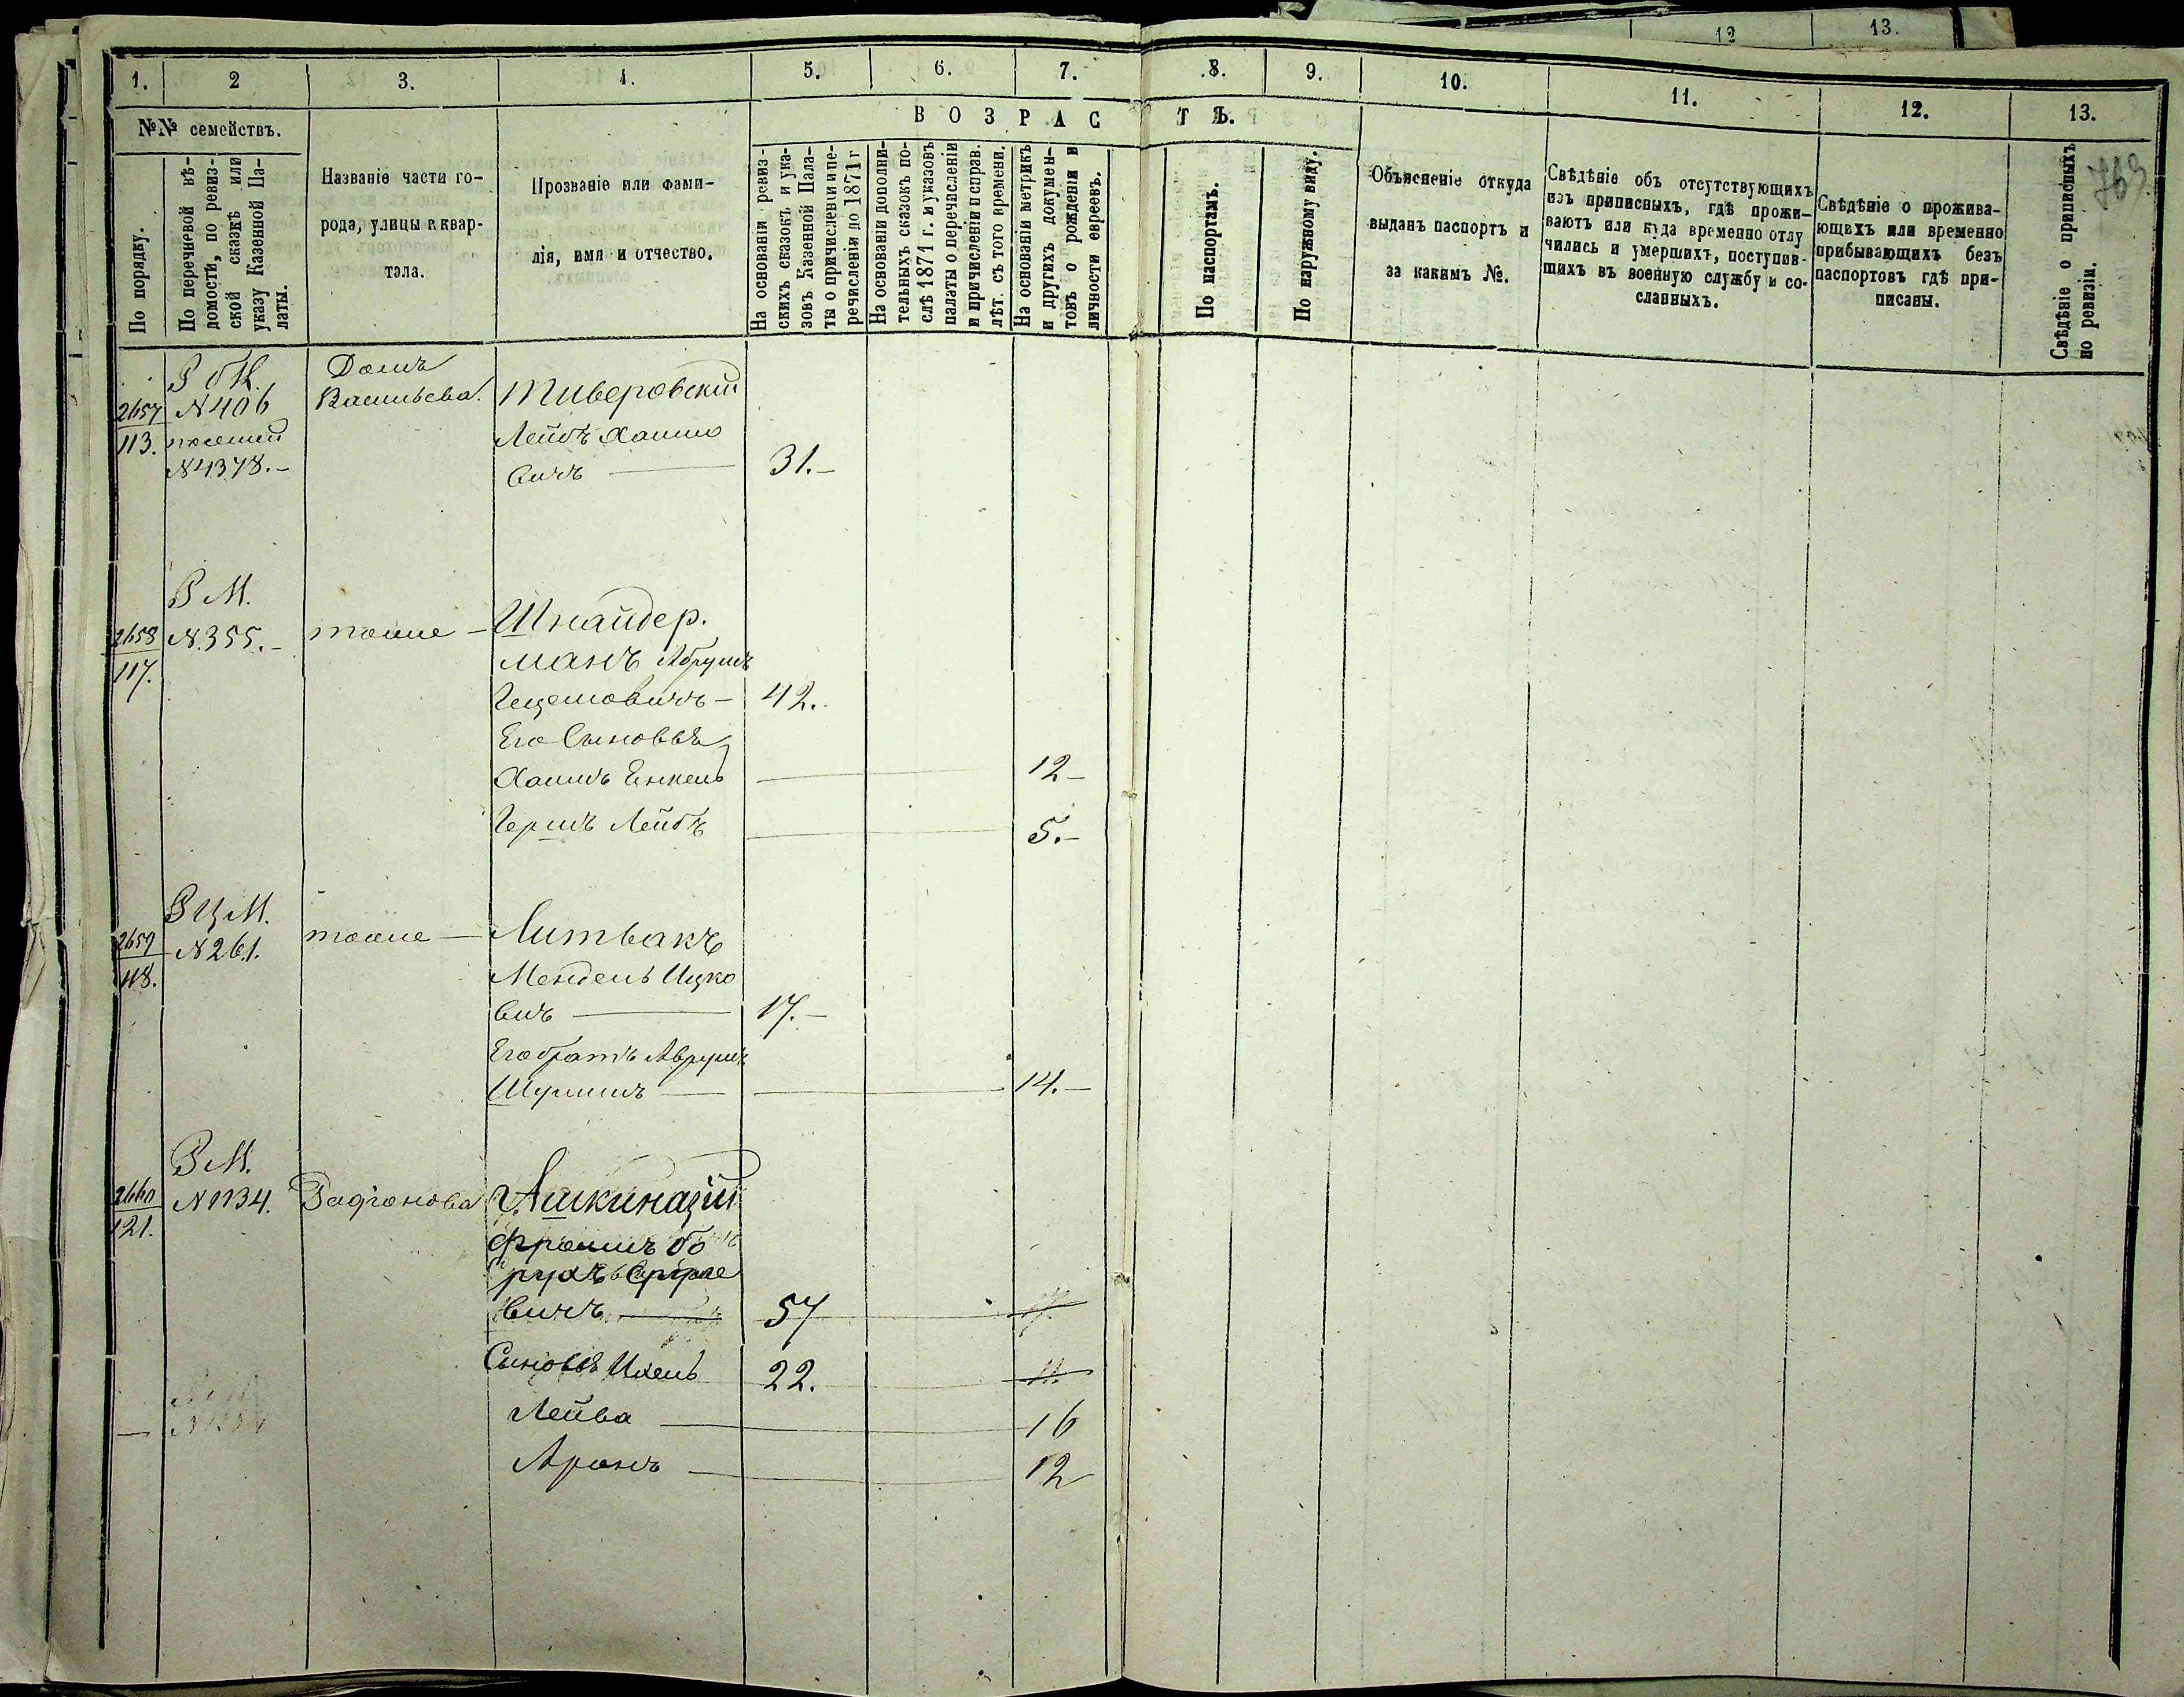 12 13.
1. 2 3. 4. 5. 6. 7. 8. 9. 10. 11. 12. 13.
№№ семействъ.
По порядку.
По перечневой вѣ-
домости, по ревиз-
ской сказкѣ или
указу Казенной Па-
латы.
Названіе части го-
рода, улицы и квар-
тала.
Прозваніе или фами-
лія, имя и отчество.
ВОЗРАСТЪ.
На основаніи ревиз-
скихъ сказокъ и ука-
зовъ Казенной Пала-
ты о причисленіи и пе-
речисленіи до 1871 г
На основаніи дополни-
тельныхъ сказокъ по-
слѣ 1871 г. и указовъ
палаты о перечисленіи
и причисленіи и справ.
лѣт. съ того времени.
На основаніи метрикъ
и другихъ докумен-
товъ о рожденіи и
личности евреевъ.
По паспортамъ.
По наружному виду.
Объясненіе откуда
выданъ паспортъ и
за какимъ №.
Свѣдѣніе объ отсутствующихъ
изъ приписныхъ, гдѣ прожи-
ваютъ или куда временно отлу
чились и умершихъ, поступив-
шихъ въ военную службу и со-
сланныхъ.
Свѣдѣніе о прожива-
ющихъ или временно
прибывающихъ безъ
паспортовъ гдѣ при-
писаны.
Свѣдѣніе о приписныхъ
по ревизіи.
769
2657
113.
N 406
N 4378.-
Домъ
Васильева.
Тиверовскій
Лейбъ Хаимо
вичъ 31.-
Р М.
2658
117.
N. 355.-
тоже -
Шнайдер.
манъ Абрумъ
Гецшовичъ - 42.
Его Сыновья
Хаимъ Енкель 12-
Гершъ Лейбъ 5.-
Р Ц М.
2659
118.
N 261.
тоже -
Литвакъ
Мендель Ицко
вичъ 17.-
Его братъ Аврумъ
Шулимъ 14.-
Р М.
2660
121.
N 1134.
Радіонова
Ашкиназій
Фроимъ Бо
рухъ Сруле
вичъ 57
Сыновья Ихель 22. 11.
Лейба 16
Аронъ 12